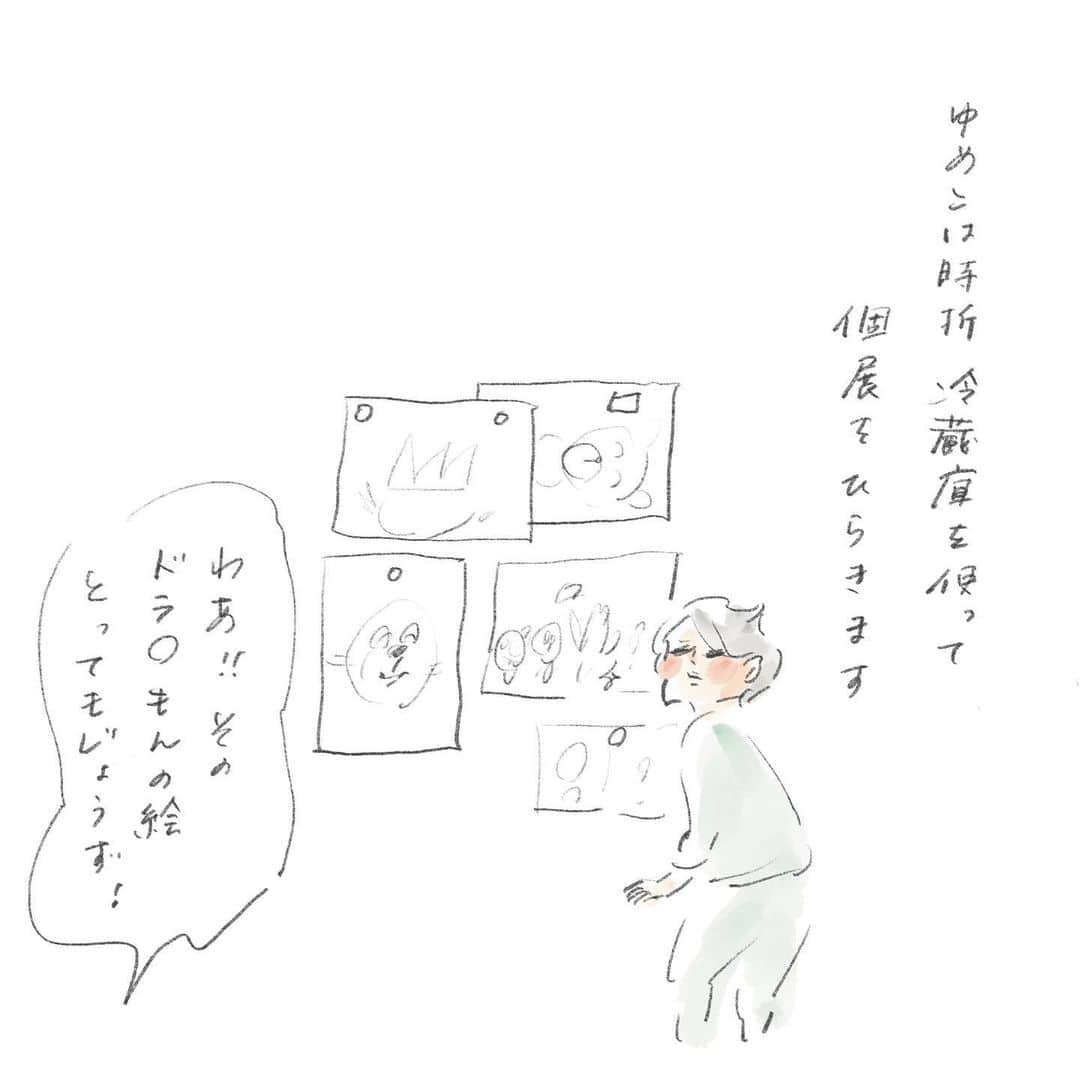 ゆめこは時折 冷蔵庫を使って
個展をひらきます
わあ!! その
ドラ〇もんの絵
とってもじょうず!